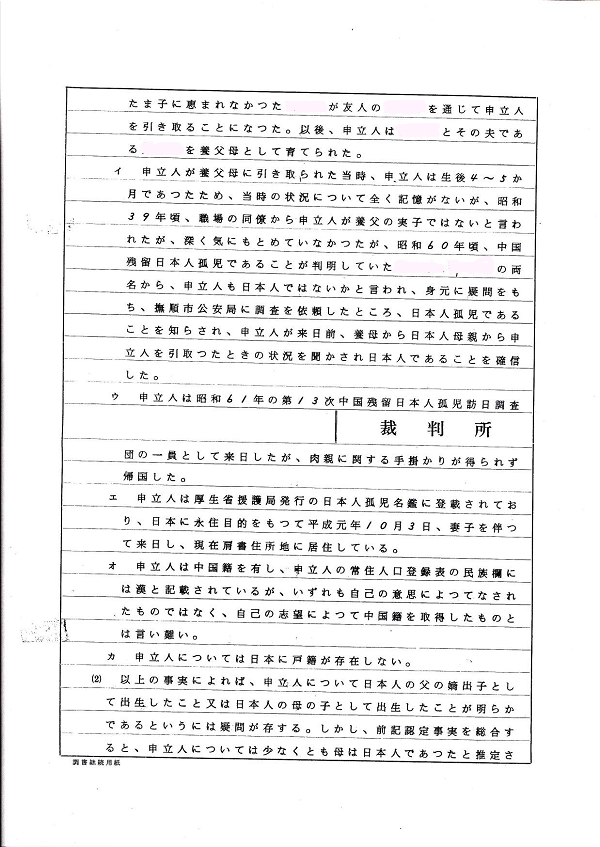 たま子に恵まれなかつた が友人の を通じて申立人
を引き取ることになつた。以後、申立人は とその夫であ
る を養父母として育てられた。
イ 申立人が養父母に引き取られた当時、申立人は生後4〜5か
月であつたため、当時の状況について全く記憶がないが、昭和
39年頃、職場の同僚から申立人が養父の実子ではないと言わ
れたが、深く気にもとめていなかつたが、昭和60年頃、中国
残留日本人孤児であることが判明していた の両
名から、申立人も日本人ではないかと言われ、身元に疑問をも
ち、撫順市公安局に調査を依頼したところ、日本人孤児である
ことを知らされ、申立人が来日前、養母から日本人母親から申
立人を引取つたときの状況を聞かされ日本人であることを確信
した。
ウ 申立人は昭和61年の第13次中国残留日本人孤児訪日調査
裁判所
団の一員として来日したが、肉親に関する手掛かりが得られず
帰国した。
エ 申立人は厚生省援護局発行の日本人孤児名鑑に登載されてお
り、日本に永住目的をもつて平成元年10月3日、妻子を伴つ
て来日し、現在肩書住所地に居住している。
オ 申立人は中国籍を有し、申立人の常住人口登録表の民族欄に
は漢と記載されているが、いずれも自己の意思によつてなされ
たものではなく、自己の志望によつて中国籍を取得したものと
は言い難い。
カ 申立人については日本に戸籍が存在しない。
(2) 以上の事実によれば、申立人について日本人の父の嫡出子とし
て出生したこと又は日本人の母の子として出生したことが明らか
であるというには疑問が存する。しかし、前記認定事実を総合す
ると、申立人については少なくとも母は日本人であつたと推定さ
調書継続用紙